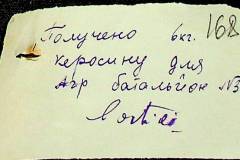 168
Получено 6 кг.
керосину для
Агр батальйон №3